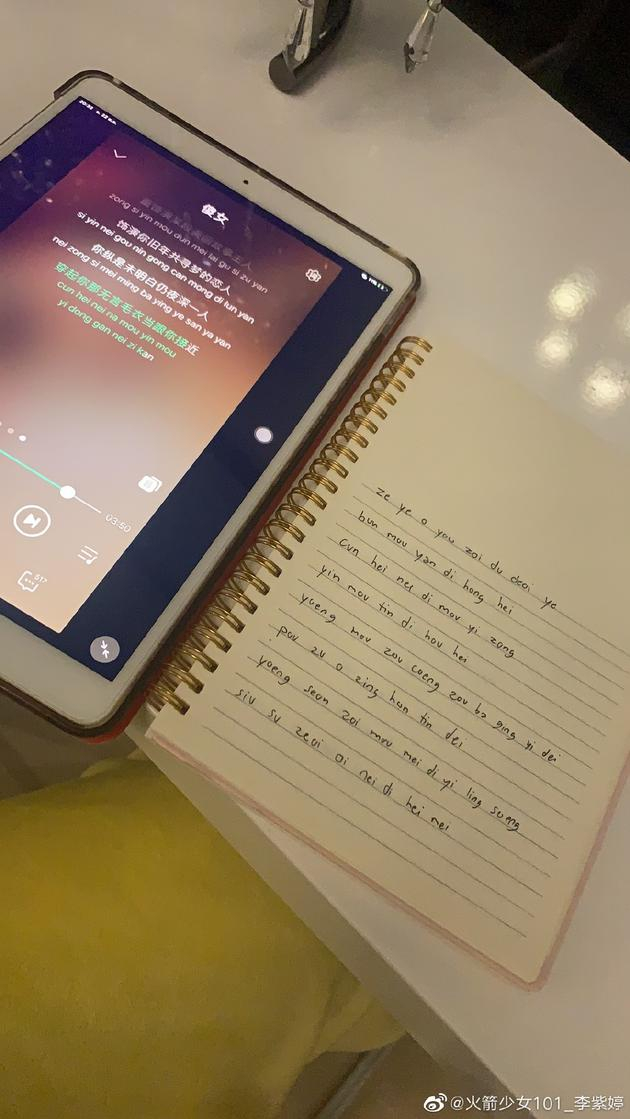 傻女
zong si yin mou dun mei lai gu si zu yan
饰演你旧年共寻梦的恋人
si yin nei gou nin gong can mong di lun yan
你纵是未明白仍夜深一人
nei zong si mei ming ba ying ye san ya yan
穿起你那无言毛衣当跟你接近
cun hei nei na mou yin mou
yi dong gan nei zi kan
03:50
517
ze ye o you zoi du deoi ye
hun mou yan di hong hei
cun hei nei di mou yi zong
yin mou tin di hou hei
yueng mou zou coeng zou ba ging yi dei
pou zu o zing han tin dei
yoeng seon zoi mou mei di yi ling soeng
siu su zeoi oi nei di hei mei
@火箭少女101_李紫婷